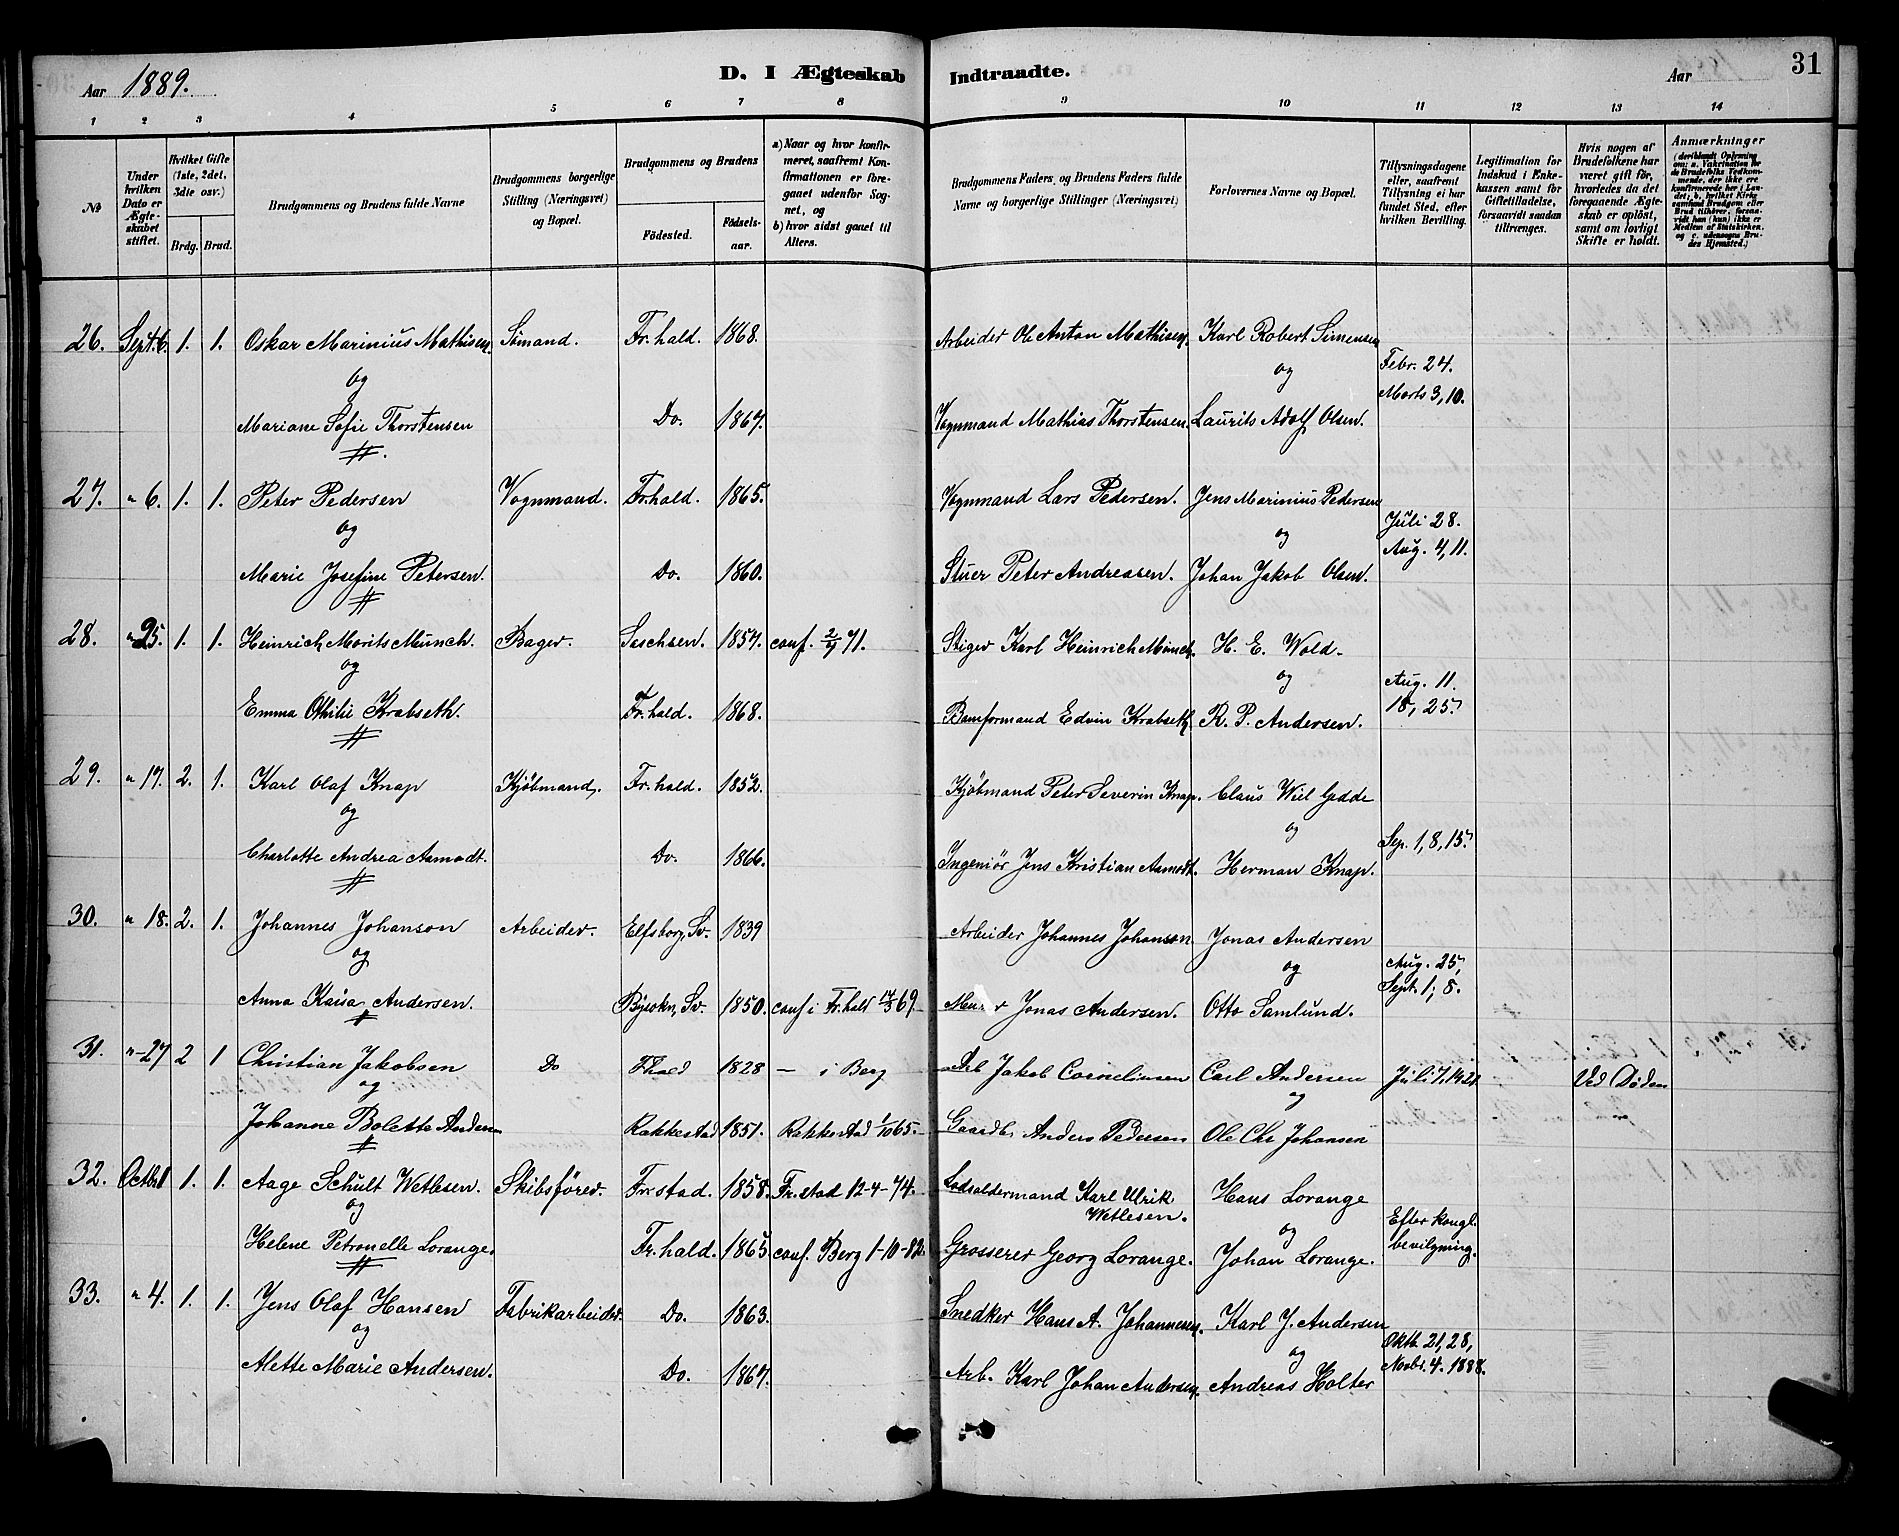 Aar 1889.
D. I Ægteskab Indtraadte.
Aar
31
1 2 3 4 5 6 7 8 9 10 11 12 13 14
No
Under hvilken Dato er Ægteskabet stiftet.
Hvilket Gifte (1ste, 2det, 3die osv.)
Brdg. Brud.
Brudgommens og Brudens fulde Navne
Brudgommens borgerlige Stilling (Næringsvei) og Bopæl.
Brudgommens og Brudens
Fødested. Fødselsaar.
a) Naar og hvor konfirmeret, saafremt Konfirmationen er foregaaet udenfor Sognet, og
b) hvor sidst gaaet til Alters.
Brudgommens Faders og Brudens Faders fulde Navne og borgerlige Stillinger (Næringsvei)
Forlovernes Navne og Bopæl.
Tillysningsdagene eller, saafremt Tillysning ei har fundet Sted, efter hvilken Bevilling.
Legitimation for Indskud i Enkekassen samt for Giftetilladelse, forsaavidt saadan tiltrænges.
Hvis nogen af Brudefolkene har været gift før, hvorledes da det foregaaende Ægteskab er opløst, samt om lovligt Skifte er holdt.
Anmærkninger
(deriblandt Oplysning om: a. Vakcination for de Brudefolks Vedkommende, der ikke ere konfirmerede her i Landet; b. hvilket Kirkesamfund Brudgom eller Brud tilhører, forsaavidt han (hun) ikke er Medlem af Statskirken, og c. udensogns Brudes Hjemsted.)
26. Sept. 6. 1. 1. Oskar Marinius Mathisen Sømand. Fr.hald. 1868. Arbeider Ole Anton Mathisen. Karl Robert Simensen
og og Febr. 24. Marts 3, 10.
Mariane Sofie Thorstensen Do. 1867. Vognmand Mathias Thorstensen. Laurits Adolf Olsen.
27. " 6. 1. 1. Peter Pedersen Vognmand. Fr.hald. 1865. Vognmand Lars Pedersen. Jens Marinius Pedersen
og og Juli 28. Aug. 4, 11.
Marie Josefine Petersen. Do. 1860. Stuer Peter Andreasen. Johan Jakob Olsen.
28. " 25. 1. 1. Heinrich Morits Münch. Bager. Sachsen. 1857. conf. 71. Stiger Karl Heinrich Münch. H. E. Wold.
og og Aug. 11. 18, 25.
Emma Othilie Krabseth. Fr.hald. 1868. Bomformand Edvin Krabseth R. P. Andersen.
29. " 17. 2. 1. Karl Olaf Knap Kjöbmand. Fr.hald. 1852. Kjöbmand Peter Severin Knap. Claus Wiel Gedde
og og Sep. 1, 8, 15.
Charlotte Andrea Aamodt. Do. 1866. Ingeniör Jens Kristian Aamodt. Herman Knap.
30. " 18. 2. 1. Johannes Johanson Arbeider. Elfsborg, Sv. 1839 Arbeider Johannes Johanson Jonas Andersen
og og Aug. 25, Sept. 1, 8.
Anna Kaisa Andersen. Sv. 1850. conf i Fr.hald 69. Jonas Andersen. Otto Samlund.
31. " 27 2 1 Christian Jakobsen Do Fhald 1828 — i Berg Arb Jakob Corneliusen Carl Andersen Juli 7, 14, 21 Ved Døden
og og
Johanne Bolette Andersen Rakkestad 1851. Rakkestad 1/10 65. Gaardb. Anders Pedersen Ole Chr Johansen
32. Octb. 1 1. 1. Aage Schult Wetlesen. Skibsfører. Fr.stad. 1858. Fr.stad 12-4-74. Lodsoldermand Karl Ulrik Wetlesen. Hans Lorange
og og Efter kongl. bevilgning.
Helene Petronelle Lorange. Fr.hald. 1865 conf. Berg 1-10-82. Grosserer Georg Lorange. Johan Lorange.
33. " 4. 1. 1. Jens Olaf Hansen Fabrikarbeider. Do. 1863. Snedker Hans A. Johannesen. Karl J. Andersen
og og Oktb. 21, 28, Novbr. 4. 1888.
Alette Marie Andersen. Do. 1867. Arb. Karl Johan Andersen. Andreas Holter